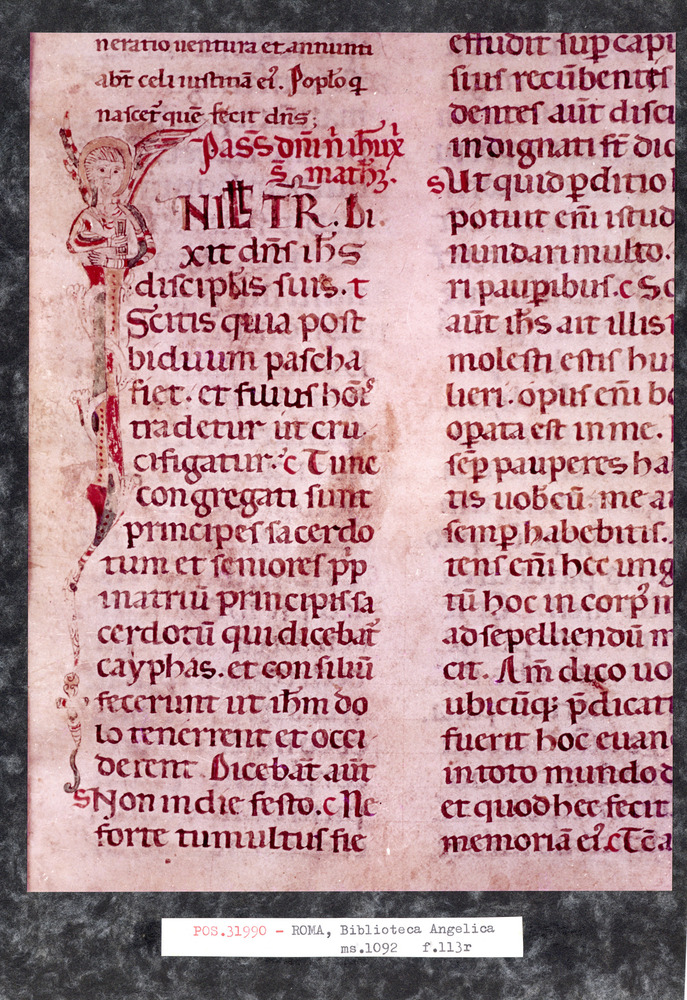 neratio uentura et annunti
abt̄ celi iustitiā ei᷒. Poplo q
nascet᷑ quē fecit dn̄s;
Pass̄ dn̄i n̄i ih̄u xp̄i
s̄. math̄ꝫ.
NILL TR̄. Di
xit dn̄s ih̄s
discipl̄is suis. t
Scitis quia post
biduum pascha
fiet. et filius hōi᷒
tradetur ut cru
cifigatur. c Tunc
congregati sunt
principes sacerdo
tum et seniores pp̄
in atriū principis sa
cerdotū qui dicebat᷑
cayphas. et consiliū
fecerunt ut ih̄m do
lo tenerent et occi
derent. Dicebāt aūt
s Non in die festo. c Ne
forte tumultus fie
effudit sup̱ capi
sius recūbentis
dentes aūt disci
indignati st̄ dic
s Ut quid ꝑditio
potuit en̄i istud
nundari multo.
ri pauꝑibus. c Sc
aūt ih̄s ait illis
molesti estis hui
lieri. opus en̄i bo
oꝑata est in me.
sēp pauperes ha
tis uobcū. me a
semꝑ habebitis.
tens en̄i hec ung
tū hoc in corp᷒ m
ad sepelliendū m
cit. Am̄ dico uo
ubicūqꝫ p̄dicat
fuerit hoc euan
in toto mundo d
et quod hec fecit
memoriā ei᷒. c Tc̄ a
POS.31990 - ROMA, Biblioteca Angelica
ms.1092 f.113r